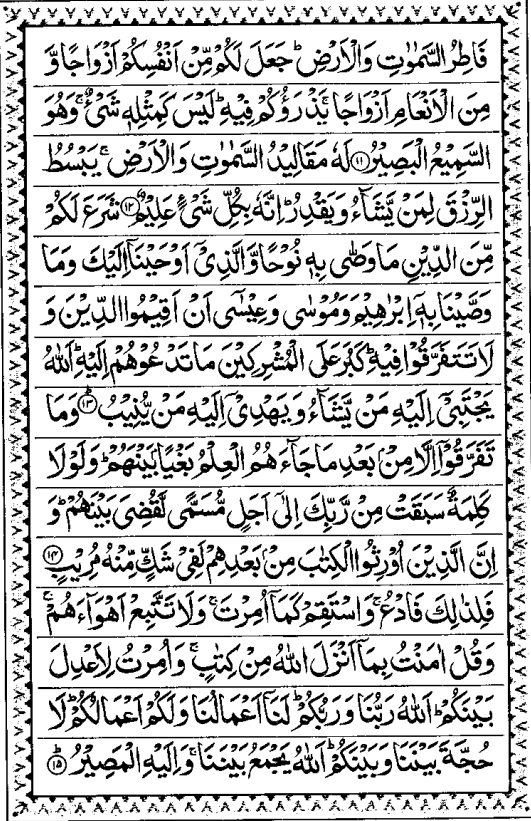 فَاطِرُ السَّمٰوٰتِ وَالْاَرْضِ ؕ جَعَلَ لَكُمْ مِّنْ اَنْفُسِكُمْ اَزْوَاجًا وَّ
مِنَ الْاَنْعَامِ اَزْوَاجًا ۚ يَذْرَؤُكُمْ فِيْهِ ؕ لَيْسَ كَمِثْلِهٖ شَيْءٌ ۚ وَهُوَ
السَّمِيْعُ الْبَصِيْرُ ﴿۱۱﴾ لَهٗ مَقَالِيْدُ السَّمٰوٰتِ وَالْاَرْضِ ۚ يَبْسُطُ
الرِّزْقَ لِمَنْ يَّشَآءُ وَيَقْدِرُ ؕ اِنَّهٗ بِكُلِّ شَيْءٍ عَلِيْمٌ ﴿۱۲﴾ شَرَعَ لَكُمْ
مِّنَ الدِّيْنِ مَا وَصّٰى بِهٖ نُوْحًا وَّالَّذِيْۤ اَوْحَيْنَاۤ اِلَيْكَ وَمَا
وَصَّيْنَا بِهٖۤ اِبْرٰهِيْمَ وَمُوْسٰى وَعِيْسٰۤى اَنْ اَقِيْمُوا الدِّيْنَ وَ
لَا تَتَفَرَّقُوْا فِيْهِ ؕ كَبُرَ عَلَى الْمُشْرِكِيْنَ مَا تَدْعُوْهُمْ اِلَيْهِ ؕ اَللّٰهُ
يَجْتَبِيْۤ اِلَيْهِ مَنْ يَّشَآءُ وَيَهْدِيْۤ اِلَيْهِ مَنْ يُّنِيْبُ ﴿۱۳﴾ وَمَا
تَفَرَّقُوْۤا اِلَّا مِنْۢ بَعْدِ مَا جَآءَهُمُ الْعِلْمُ بَغْيًاۢ بَيْنَهُمْ ؕ وَلَوْلَا
كَلِمَةٌ سَبَقَتْ مِنْ رَّبِّكَ اِلٰۤى اَجَلٍ مُّسَمًّى لَّقُضِيَ بَيْنَهُمْ ؕ وَ
اِنَّ الَّذِيْنَ اُوْرِثُوا الْكِتٰبَ مِنْۢ بَعْدِهِمْ لَفِيْ شَكٍّ مِّنْهُ مُرِيْبٍ ﴿۱۴﴾
فَلِذٰلِكَ فَادْعُ ۚ وَاسْتَقِمْ كَمَاۤ اُمِرْتَ ۚ وَلَا تَتَّبِعْ اَهْوَآءَهُمْ ۚ
وَقُلْ اٰمَنْتُ بِمَاۤ اَنْزَلَ اللّٰهُ مِنْ كِتٰبٍ ۚ وَاُمِرْتُ لِاَعْدِلَ
بَيْنَكُمْ ؕ اَللّٰهُ رَبُّنَا وَرَبُّكُمْ ؕ لَنَاۤ اَعْمَالُنَا وَلَكُمْ اَعْمَالُكُمْ ؕ لَا
حُجَّةَ بَيْنَنَا وَبَيْنَكُمْ ؕ اَللّٰهُ يَجْمَعُ بَيْنَنَا ۚ وَاِلَيْهِ الْمَصِيْرُ ﴿۱۵﴾